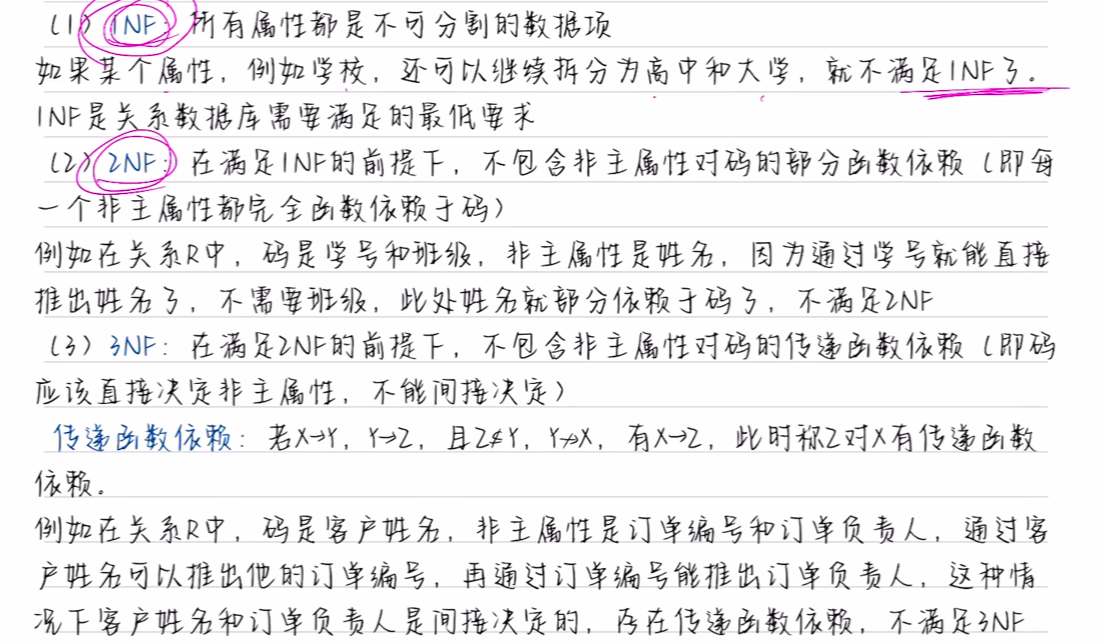 (1) 1NF：所有属性都是不可分割的数据项
如果某个属性，例如学校，还可以继续拆分为高中和大学，就不满足1NF了。
1NF是关系数据库需要满足的最低要求
(2) 2NF：在满足1NF的前提下，不包含非主属性对码的部分函数依赖（即每
一个非主属性都完全函数依赖于码）
例如在关系R中，码是学号和班级，非主属性是姓名，因为通过学号就能直接
推出姓名了，不需要班级，此处姓名就部分依赖于码了，不满足2NF
(3) 3NF：在满足2NF的前提下，不包含非主属性对码的传递函数依赖（即码
应该直接决定非主属性，不能间接决定）
传递函数依赖：若X→Y，Y→Z，且Z⊄Y，Y↛X，有X→Z，此时称Z对X有传递函数
依赖。
例如在关系R中，码是客户姓名，非主属性是订单编号和订单负责人，通过客
户姓名可以推出他的订单编号，再通过订单编号能推出订单负责人，这种情
况下客户姓名和订单负责人是间接决定的，存在传递函数依赖，不满足3NF